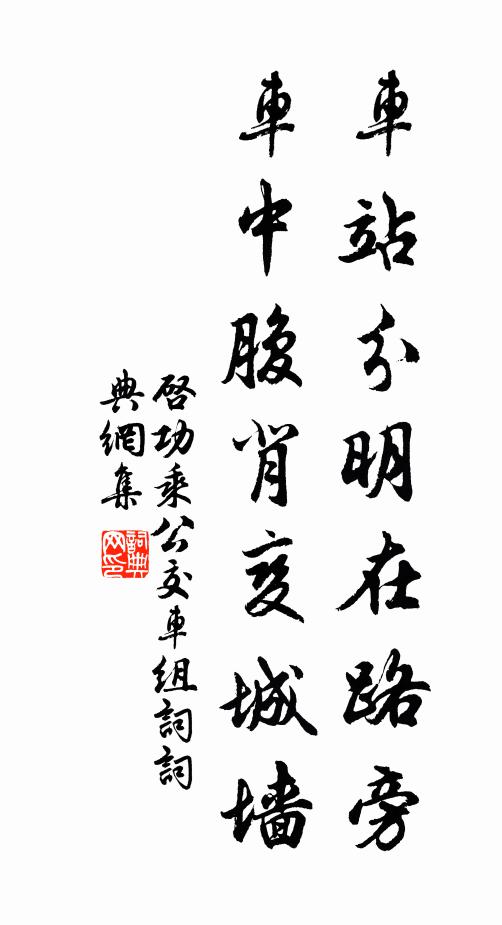 車站分明在路旁
車中腹背变城墙
啓功乘公交車組詞詞
典網集
詞典
网印